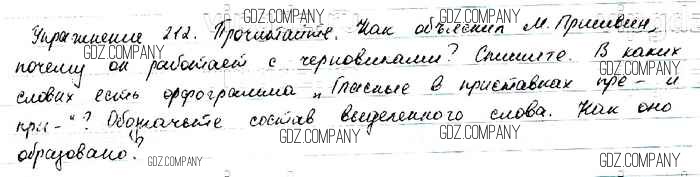 Упражнение 212. Прочитайте. Как объяснил М. Пришвин,
почему он работает с черновиками? Спишите. В каких
словах есть орфограмма „Гласные в приставках пре- и
при-"? Обозначьте состав выделенного слова. Как оно
образовано?
GDZ.COMPANY
GDZ.COMPANY
GDZ.COMPANY
GDZ.COMPANY
GDZ.COMPANY
GDZ.COMPANY
GDZ.COMPANY
GDZ.COMPANY
GDZ.COMPANY
GDZ.COMPANY